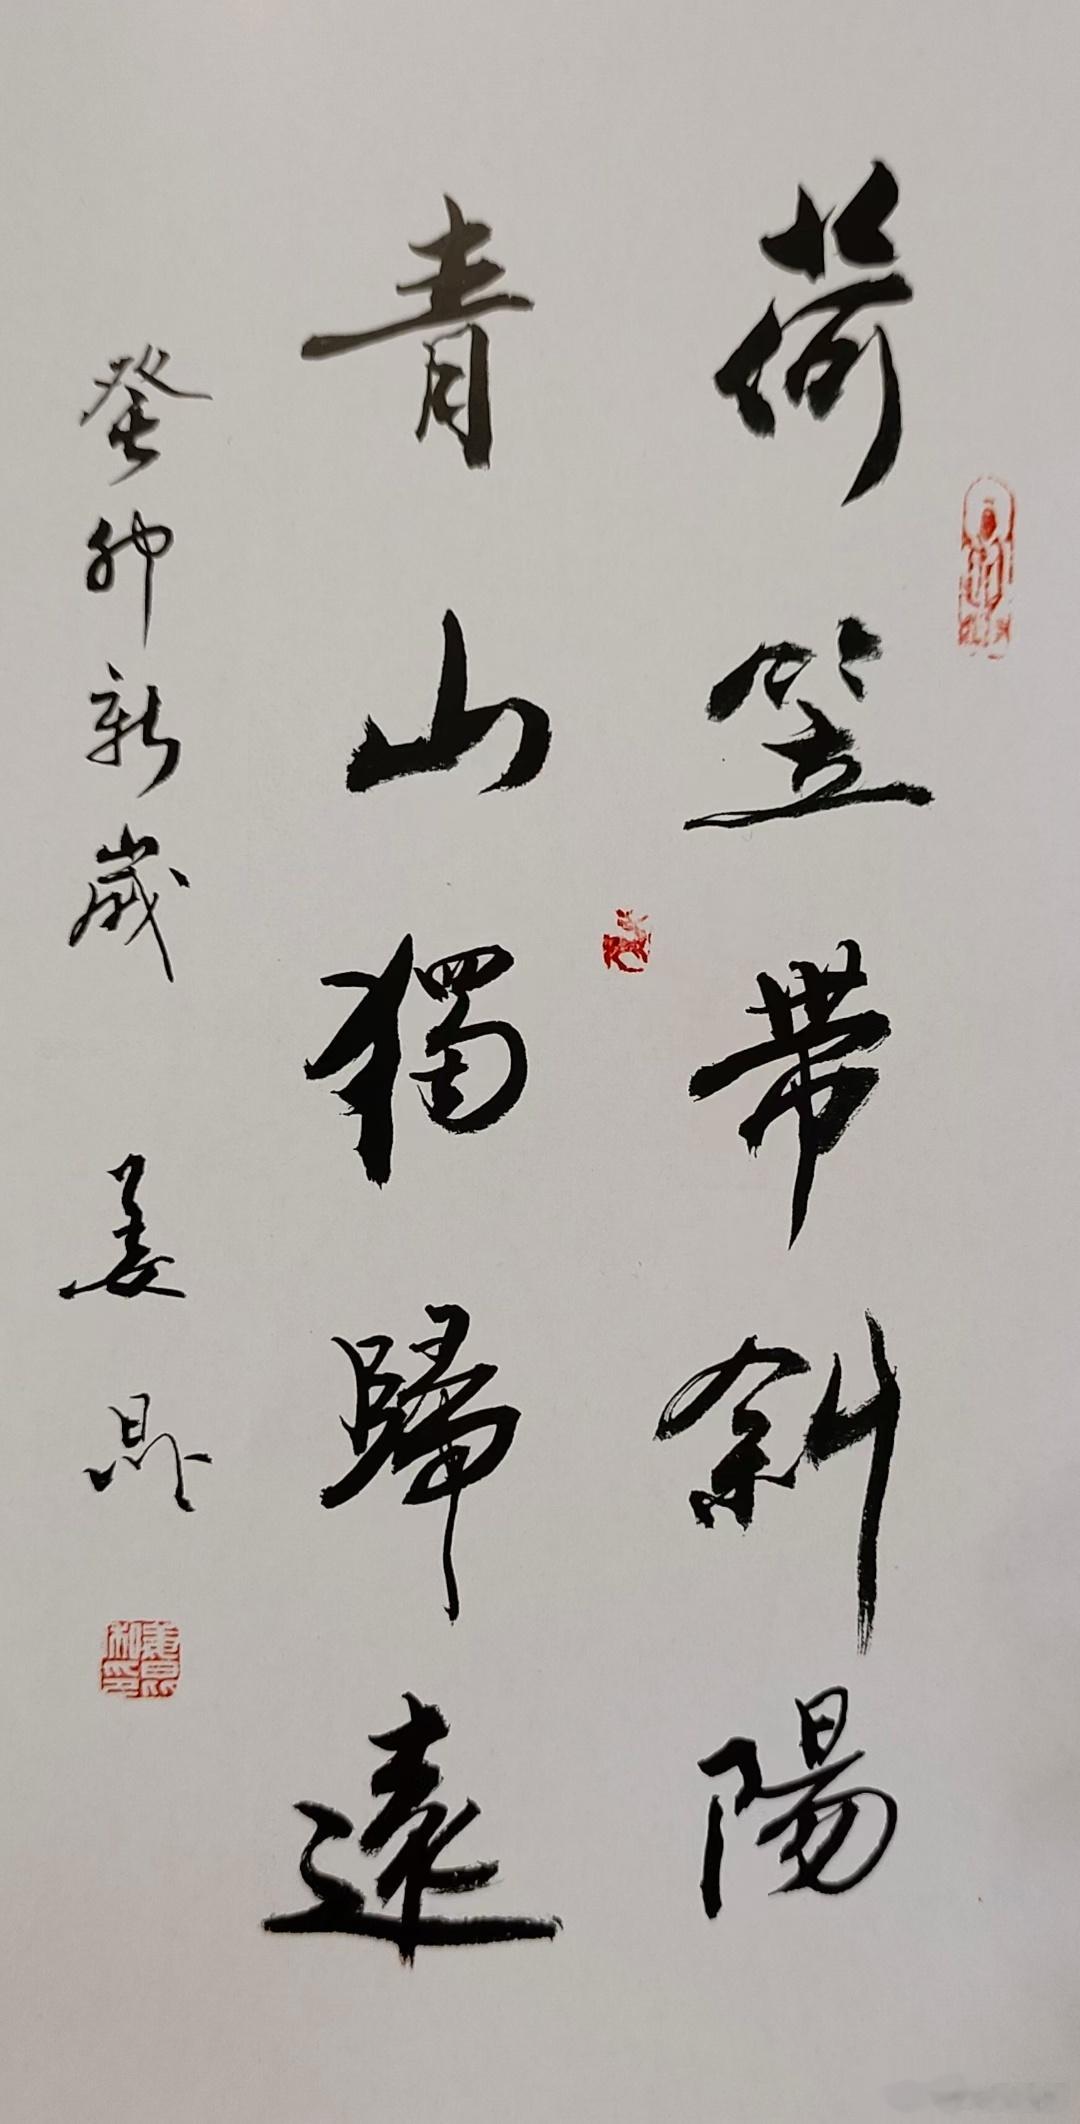 荷笠帶斜陽
青山獨歸遠
癸卯新歲 姜昆